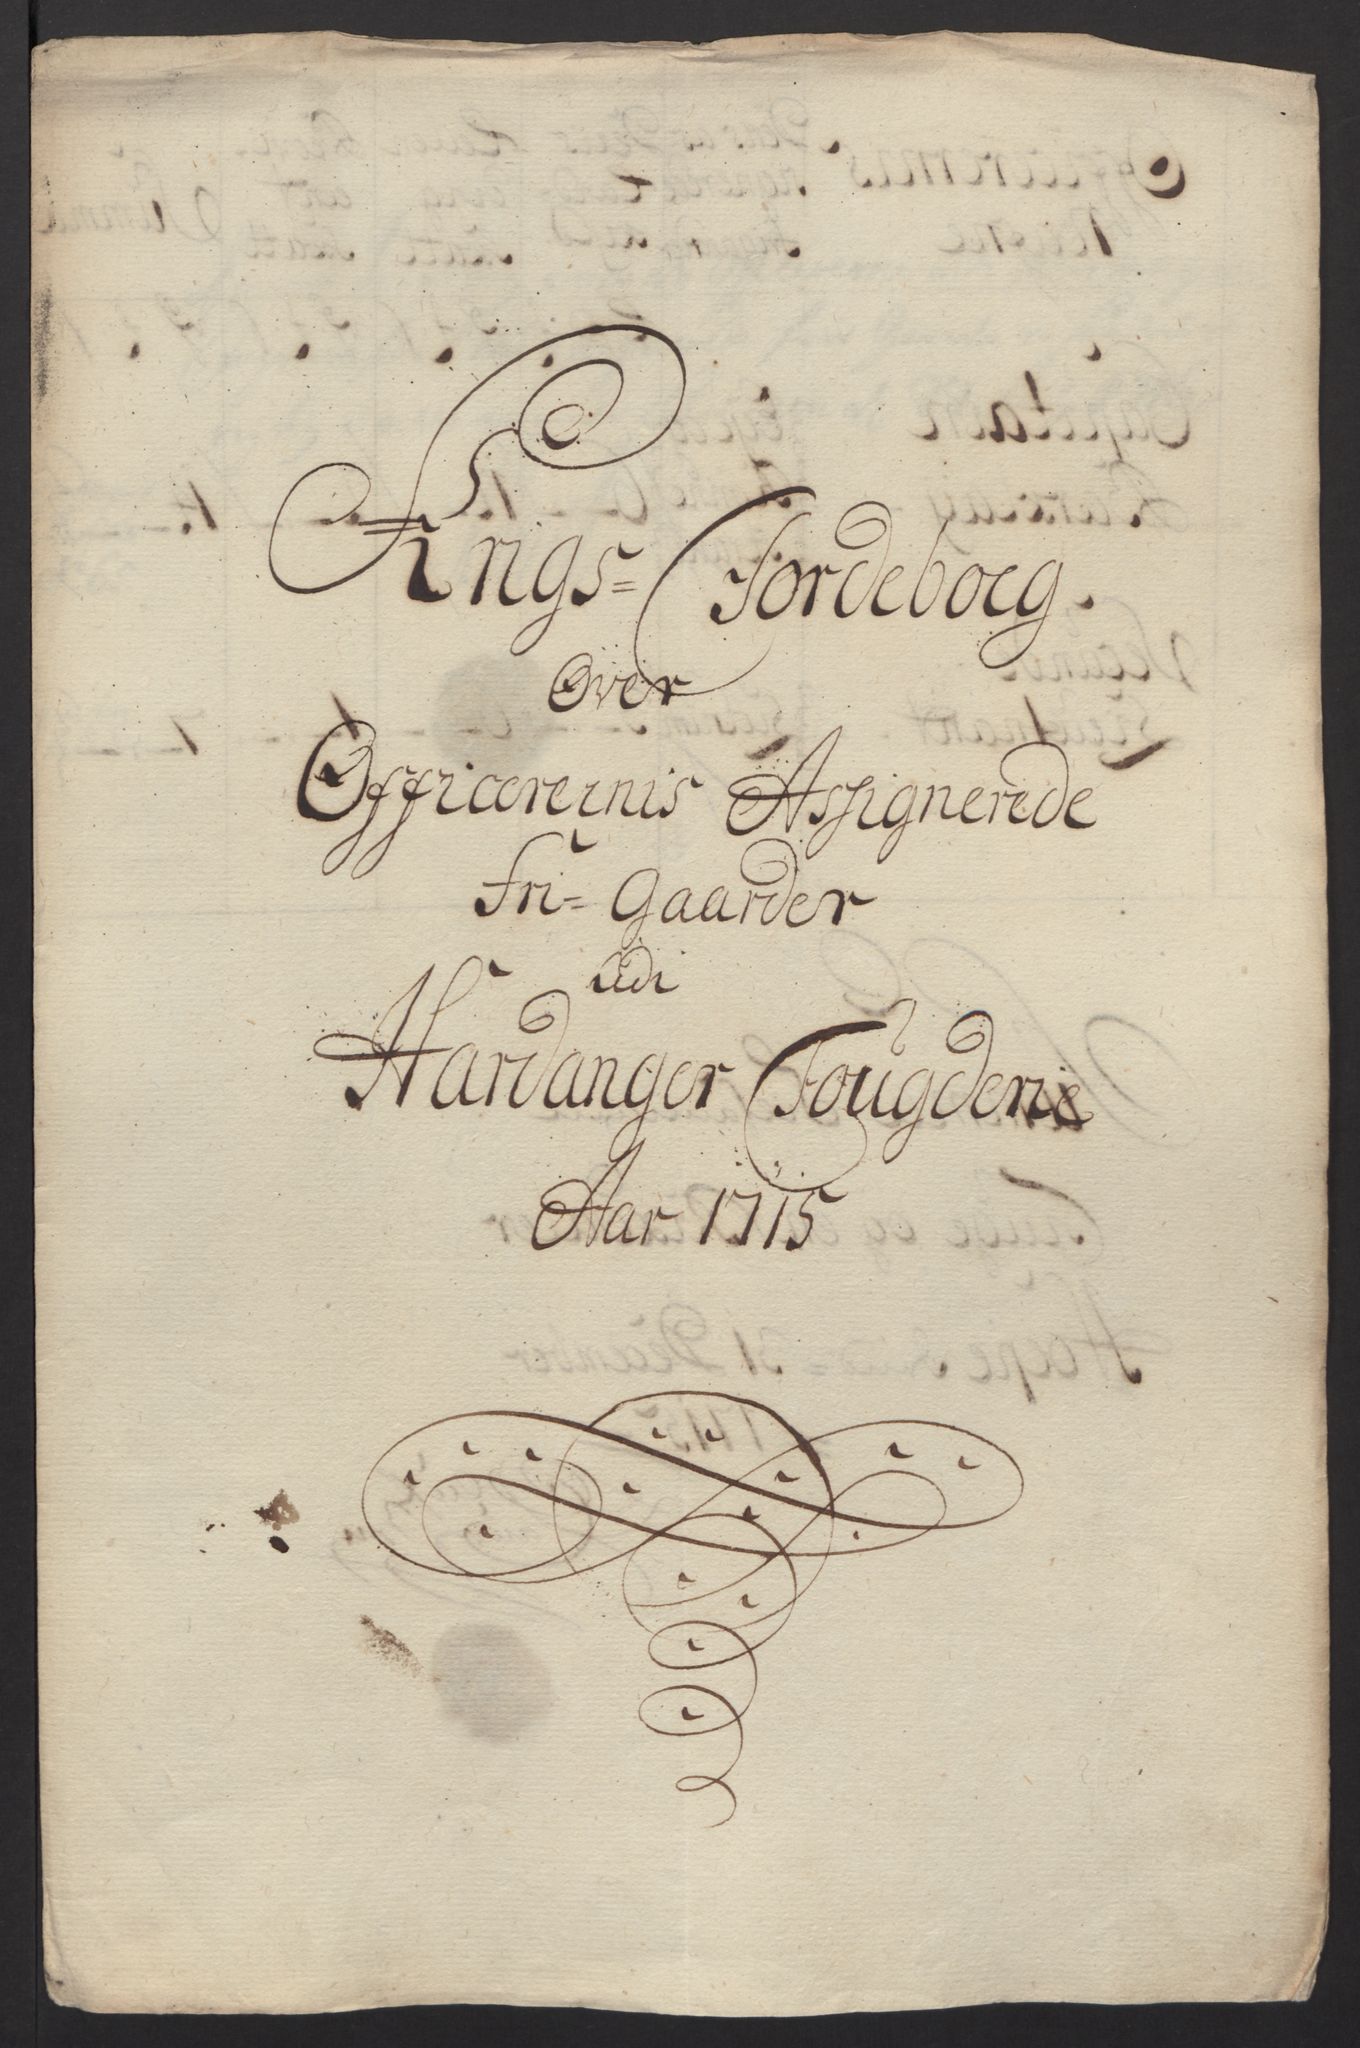 Krigs= Jordeboeg.
Over
Officerernis Assignerede
Fri= Gaarder
udi
Hardanger Fougderie
Aar 1715